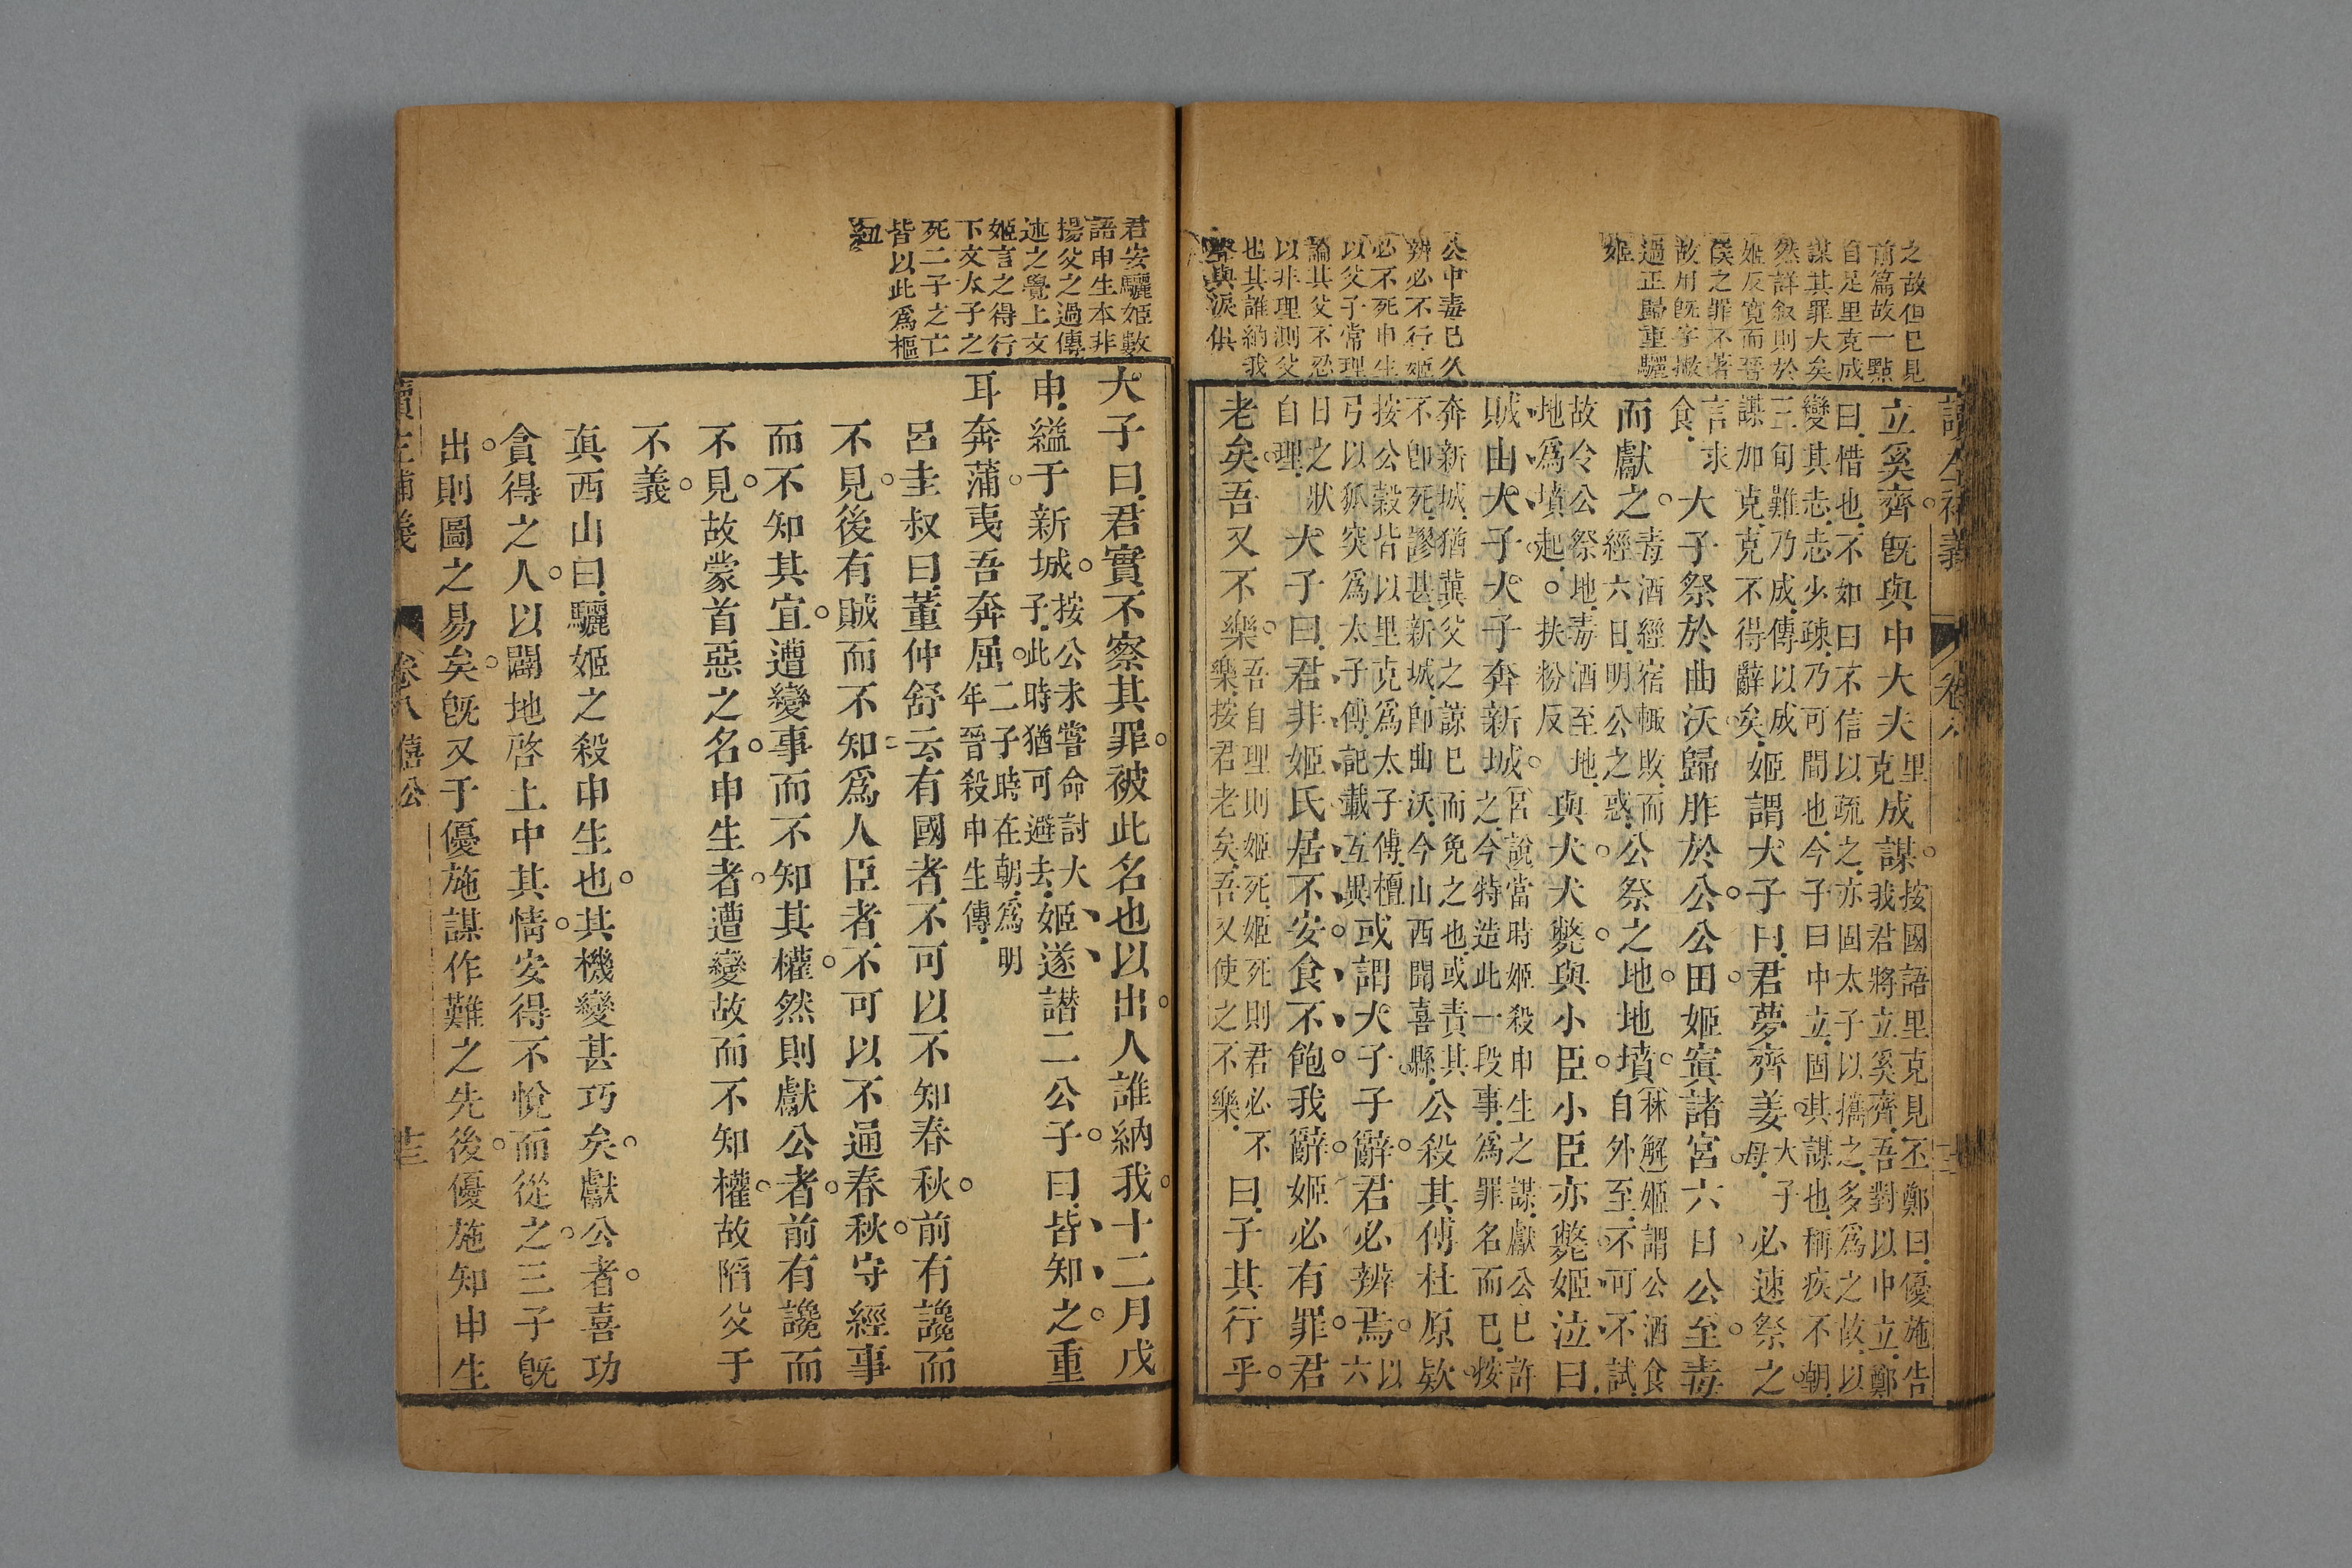 之故但已見
前篇故一點
自足里克成
謀其罪大矣
然詳叙則於
姬反寬而晉
侯之罪不著
故用旣字撇
過正歸重驪
姬
公中毒已久
辨必不行姬
必不死申生
以父子常理
論其父不忍
以非理測父
也其誰納我
聲與淚俱
立奚齊旣與中大夫
里
克
成謀
按國語里克見丕鄭曰優施告
我君將立奚齊吾對以中立鄭
曰惜也不如曰不信以疏之亦固太子以攜之多爲之故以
變其志志少疎乃可間也今子曰中立固其謀也稱疾不朝
三旬難乃成傳以成
謀加克克不得辭矣
姬謂大子曰君夢齊姜
大子
母
必速祭之
言求
食
大子祭於曲沃歸胙於公公田姬寘諸宮六日公至毒
而獻之
毒酒經宿輒敗而
經六日明公之惑
公祭之地地墳
林解姬謂公酒食
自外至不可不試
故令公祭地毒酒至地
地爲墳起○扶粉反
與犬犬斃與小臣小臣亦斃姬泣曰
賊由大子大子奔新城
宮說當時姬殺申生之謀獻公已許
之今特造此一段事爲罪名而已按
奔新城猶冀父之諒已而免之也或責其
不卽死謬甚新城卽曲沃今山西聞喜縣
公殺其傅杜原欵
按公穀皆以里克爲太子傅檀
弓以狐突爲太子傅記載互異
或謂大子子辭君必辨焉
以六
日之狀
自理
大子曰君非姬氏居不安食不飽我辭姬必有罪君
老矣吾又不樂
吾自理則姬死姬死則君必不
樂按君老矣吾又使之不樂
曰子其行乎
讀左補義
卷八
君安驪姬數
語申生本非
揚父之過傳
述之覺上文
姬言之得行
下文太子之
死二子之亡
皆以此爲樞
紐
大子曰君實不察其罪被此名也以出人誰納我十二月戊
申縊于新城
按公未嘗命討大
子此時猶可避去
姬遂譖二公子曰皆知之重
耳奔蒲夷吾奔屈
二子時在朝爲明
年晉殺申生傳
呂圭叔曰董仲舒云有國者不可以不知春秋前有讒而
不見後有賊而不知爲人臣者不可以不通春秋守經事
而不知其宜遭變事而不知其權然則獻公者前有讒而
不見故蒙首惡之名申生者遭變故而不知權故陷父于
不義
眞西山曰驪姬之殺申生也其機變甚巧矣獻公者喜功
貪得之人以闢地啓土中其情安得不悅而從之三子旣
出則圖之易矣旣又于優施謀作難之先後優施知申生
讀左補義
卷八
僖公